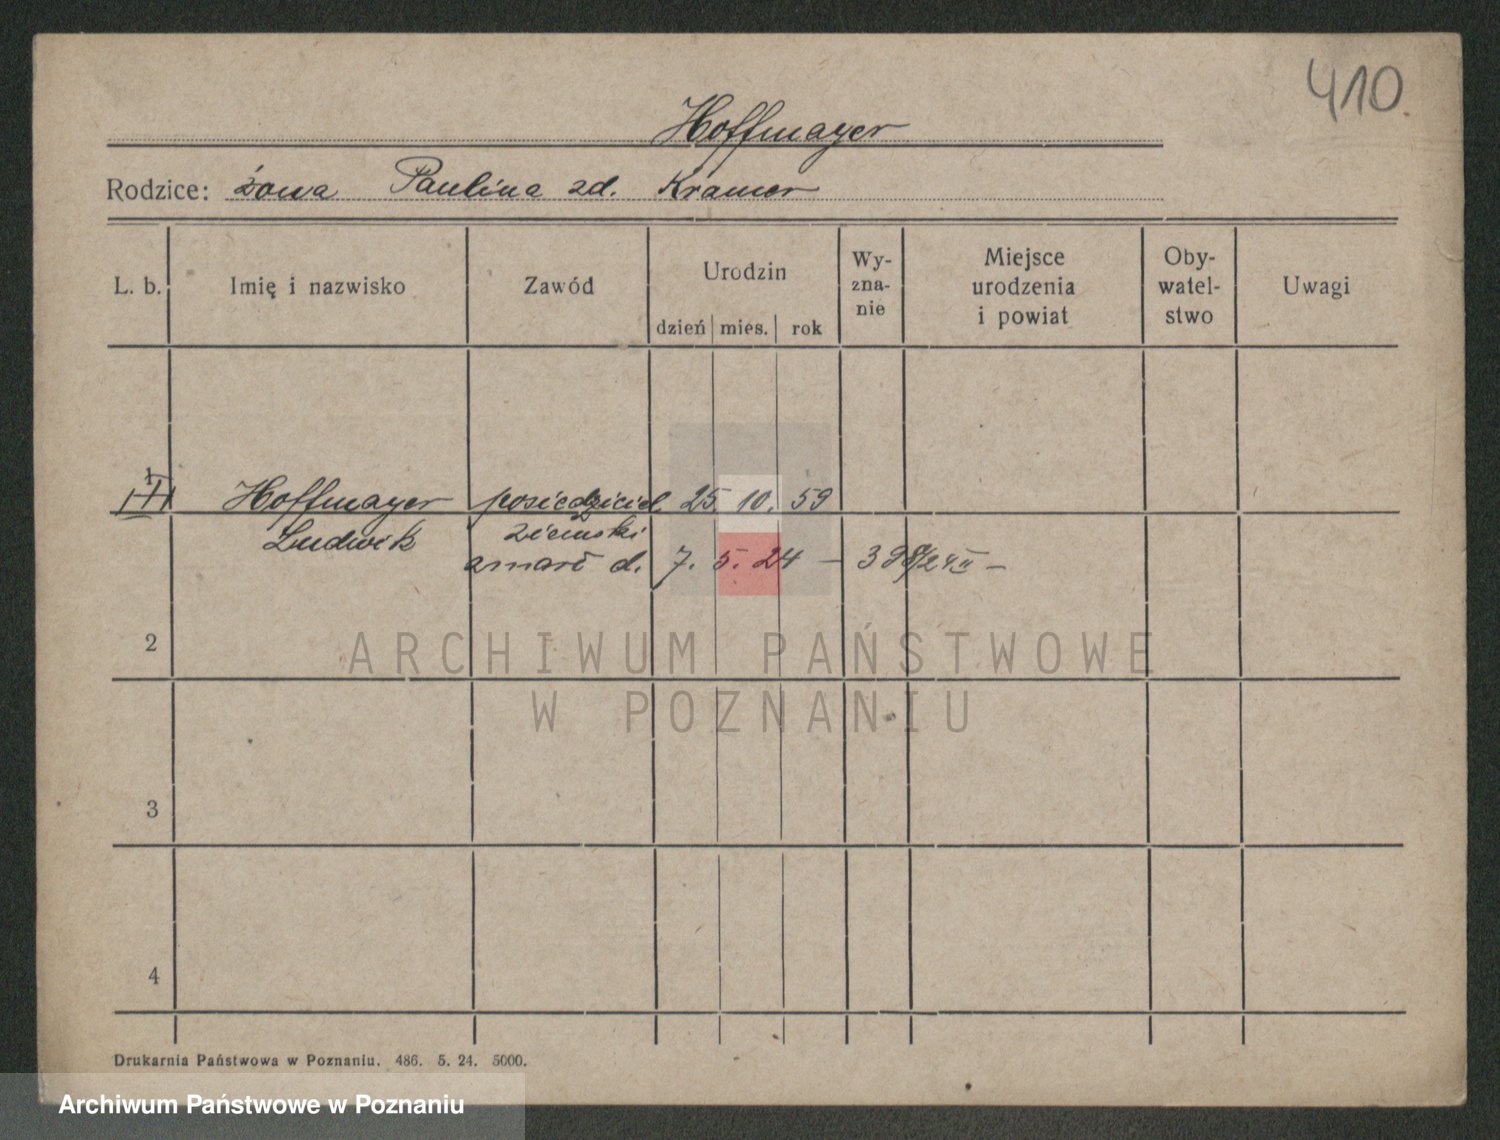 410.
Hoffmayer
Rodzice: żona Paulina zd. Kramer
L. b. Imię i nazwisko Zawód Urodzin dzień mies. rok Wy-zna-nie Miejsce urodzenia i powiat Oby-watel-stwo Uwagi
1 Hoffmayer posiedziciel 25. 10. 59
Ludwik ziemski
zmarł d. 7. 5. 24 — 398/24 II —
2
3
4
Drukarnia Państwowa w Poznaniu. 486. 5. 24. 5000.
ARCHIWUM PAŃSTWOWE
W POZNANIU
Archiwum Państwowe w Poznaniu